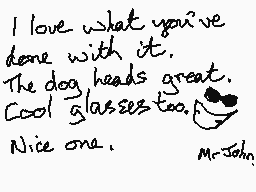 I love what you've
done with it.
The dog heads great.
Cool glasses too.
Nice one.
Mr John